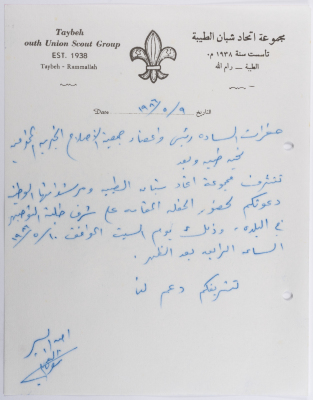 Taybeh
outh Union Scout Group
EST. 1938
Taybeh - Rammallah
مجموعة اتحاد شبان الطيبة
تأسست سنة ١٩٣٨ م.
الطيبة – رام الله
Date ١٩٨٦/٥/٩ التاريخ
حضرات الساده رئيس واعضاء جمعية الاصلاح الخيريه
تحيه طيبه وبعد
تتشرف مجموعة اتحاد شبان الطيبه
دعوتكم لحضور الحفله المقامه على شرف طلبة التوجيهي
في البلده، وذلك يوم السبت الموافق ١٩٨٦/٥/١٠
الساعه الرابعه بعد الظهر.
تشريفكم دعم لنا
امين السر